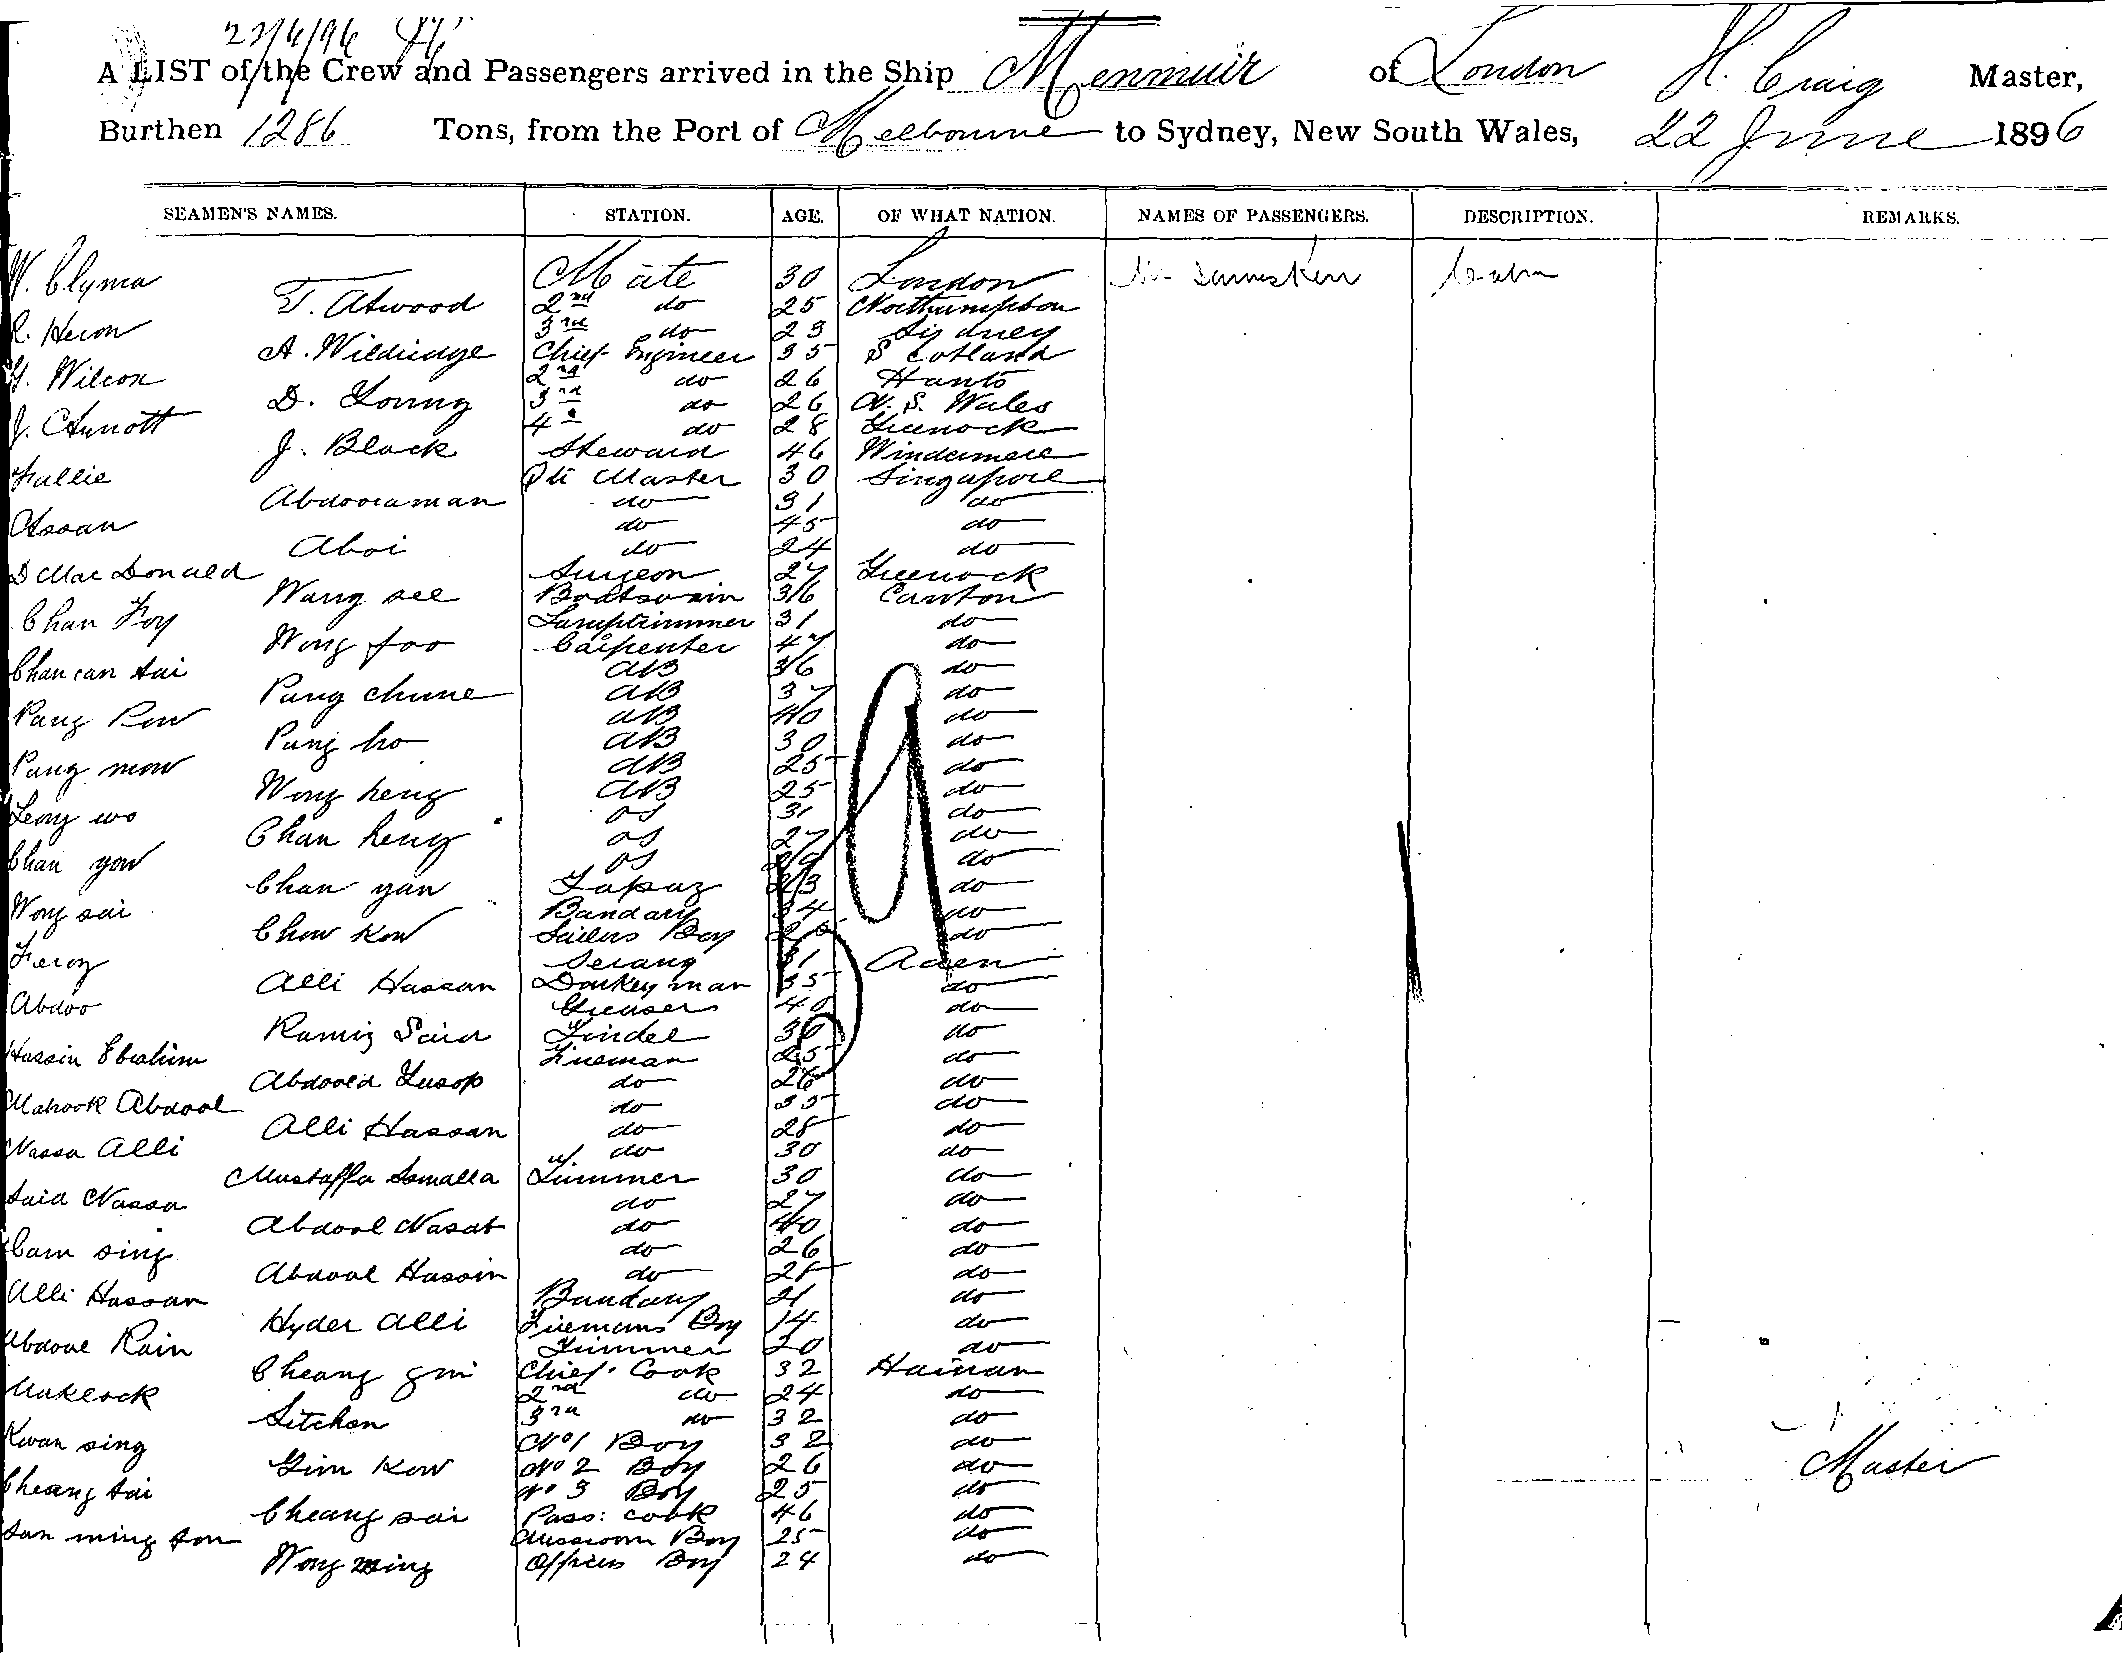 22/6/96
A LIST of the Crew and Passengers arrived in the Ship Menmuir of London H. Craig Master,
Burthen 1286 Tons, from the Port of Melbourne to Sydney, New South Wales, 22 June 1896
SEAMEN'S NAMES. STATION. AGE. OF WHAT NATION. NAMES OF PASSENGERS. DESCRIPTION. REMARKS.
W. Clyma Mate 30 London
T. Atwood 2nd do 25 Northumpton
R. Heron 3rd do 23 Sydney
A. Wildridge Chief Engineer 35 Scotland
Wilson 2nd do 26 Hants
D. Young 3rd do 26 N. S. Wales
J. Arnott 4th do 28 Greenock
J. Black Steward 46 Windermere
Fallie Qti Master 30 Singapore
Abdooraman do 31 do
Assan do 45 do
Aboi do 24 do
D MacDonald Surgeon 27 Greenock
Wang see Boatswain 36 Canton
Chan Foy Lamptrimmer 31 do
Wong foo Carpenter 47 do
Chan can tai AB 36 do
Pang chune AB 37 do
Pang Kow AB 40 do
Pang ho AB 30 do
Pang mow AB 25 do
Wong heng AB 25 do
Leong wo OS 31 do
Chan heng OS 27 do
Chan yow OS 29 do
Chan yan Topaz 23 do
Wong sai Bandary 34 do
Chow Kow Sailors Boy do
Feroz Serang 31 Aden
Alli Hassan Donkeyman 35 do
Abdoo Greaser 40 do
Ramiz Said Tindel 30 do
Hassin Ebrahim Fireman 25 do
Abdoola Yusop do 26 do
Mabrook Abdool do 35 do
Alli Hassan do 28 do
Nassa Alli do 30 do
Mustaffa Ismalla Trimmer 30 do
Said Nassa do 27 do
Abdool Nasab do 40 do
Cam sing do 26 do
Abdool Hassin do 28 do
Alli Hassan Bandary 21 do
Hyder Alli Firemans Boy 14 do
Abdool Rain Trimmer 20 do
Cheang gni Chief Cook 32 Hainan
2nd do 24 do
Sitchon 3rd do 32 do
Kwan sing No 1 Boy 32 do
Gim Kow No 2 Boy 26 do
Cheang tai No 3 Boy 25 do
Cheang sai Pass: cook 46 do
ming Messroom Boy 25 do
Wong ming Officers Boy 24 do
Master